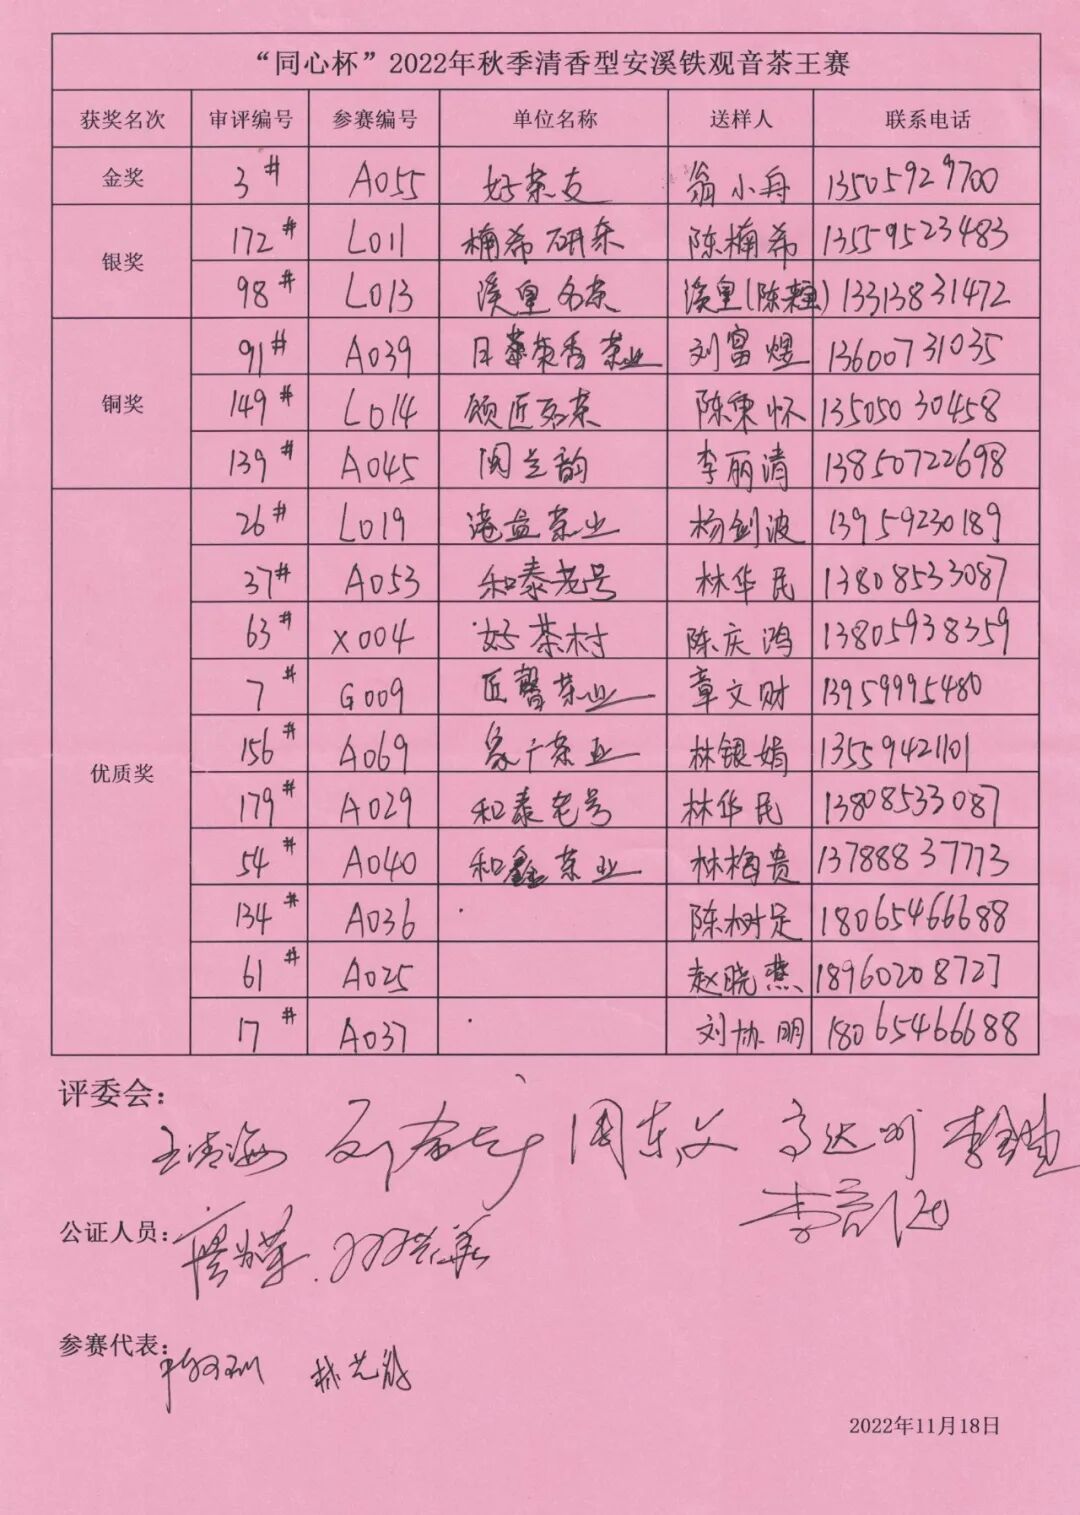 “同心杯”2022年秋季清香型安溪铁观音茶王赛
获奖名次 审评编号 参赛编号 单位名称 送样人 联系电话
金奖 3# A055 好茶友 翁小舟 13505929700
银奖 172# L011 楠希研茶 陈楠希 13559523483
98# L013 溪皇名茶 溪皇(陈) 13313831472
铜奖 91# A039 日香茶业 刘富煜 13600731035
149# L014 颜匠名茶 陈秉怀 13505030458
139# A045 闽兰韵 李丽清 13850722698
优质奖 26# L019 港益茶业 杨剑波 13959230189
37# A053 和泰老号 林华民 13808533087
63# X004 好茶村 陈庆鸿 13805938359
7# G009 匠馨茶业 章文财 13959995480
156# A069 广茶业 林银娟 13559421101
179# A029 和泰老号 林华民 13808533087
54# A040 和鑫茶业 林梅贵 13788837773
134# A036 陈树足 18065466688
61# A025 赵晓燕 18960208727
17# A037 刘协明 18065466688
评委会：
王清海 周东 高达 李
公证人员：
参赛代表：
林
2022年11月18日